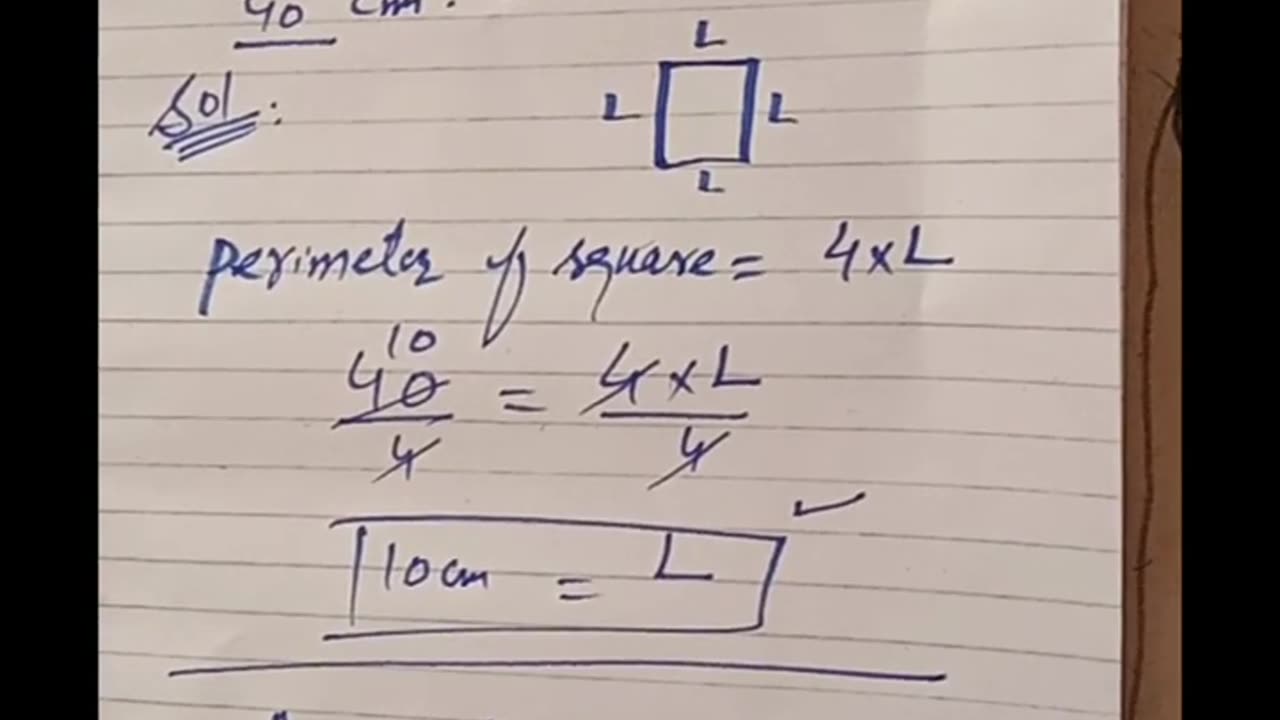 40 cm.
Sol :
L
L L
L
perimeter of square = 4 x L
10
40 = 4 x L
4 4
10 cm = L